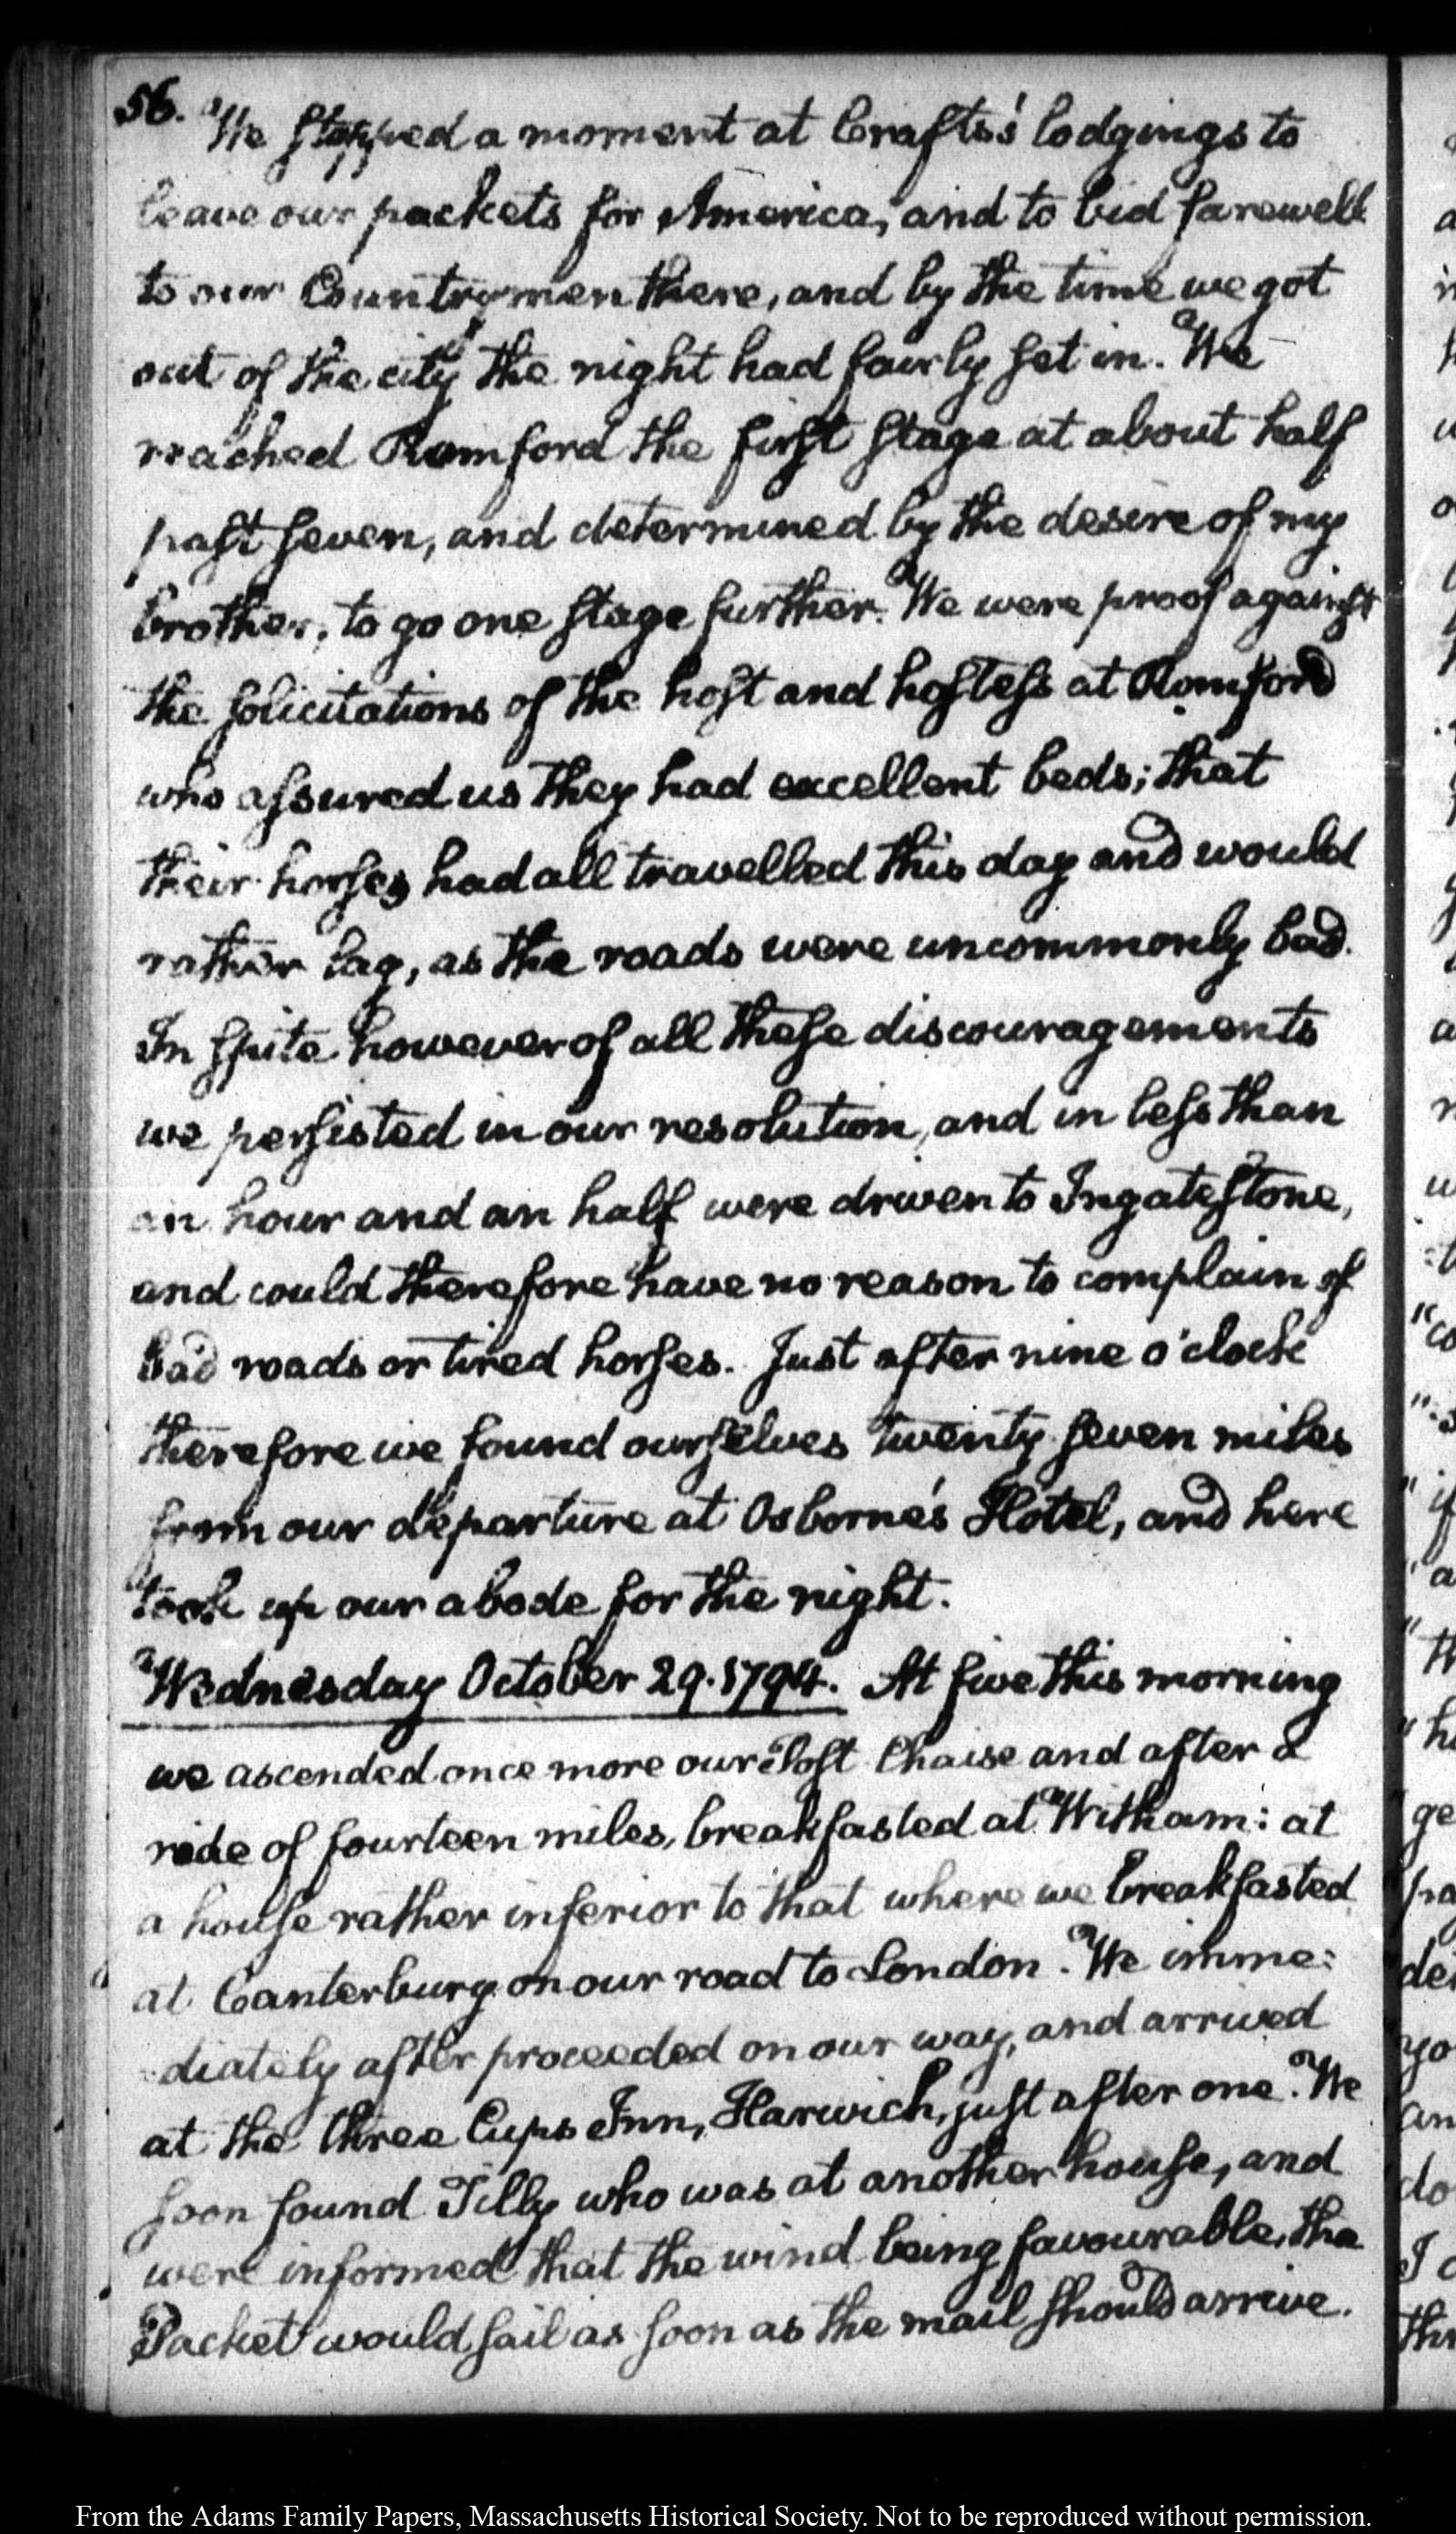 56. We stopped a moment at Crafts's lodgings to
leave our packets for America, and to bid farewell
to our Countrymen there, and by the time we got
out of the city the night had fairly set in. We
reached Romford the first stage at about half
past seven, and determined by the desire of my
brother, to go one stage further. We were proof against
the solicitations of the host and hostess at Romford
who assured us they had excellent beds; that
their horses had all travelled this day and would
rather lag, as the roads were uncommonly bad.
In spite however of all these discouragements
we persisted in our resolution, and in less than
an hour and an half were driven to Ingatestone,
and could therefore have no reason to complain of
bad roads or tired horses. Just after nine o'clock
therefore we found ourselves twenty seven miles
from our departure at Osborne's Hotel, and here
took up our abode for the night.
Wednesday October 29. 1794. At five this morning
we ascended once more our Post Chaise and after a
ride of fourteen miles, breakfasted at Witham: at
a house rather inferior to that where we breakfasted
at Canterbury on our road to London. We imme:
diately after proceeded on our way, and arrived
at the three Cups Inn, Harwich, just after one. We
soon found Tilly who was at another house, and
were informed that the wind being favourable, the
Packet would sail as soon as the mail should arrive.
From the Adams Family Papers, Massachusetts Historical Society. Not to be reproduced without permission.